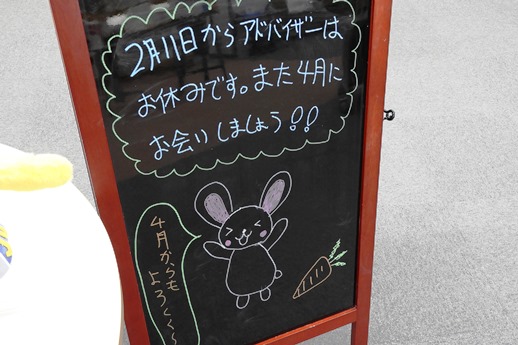 2月11日からアドバイザーは
お休みです。また4月に
お会いしましょう!!
4月からも
よろしく～